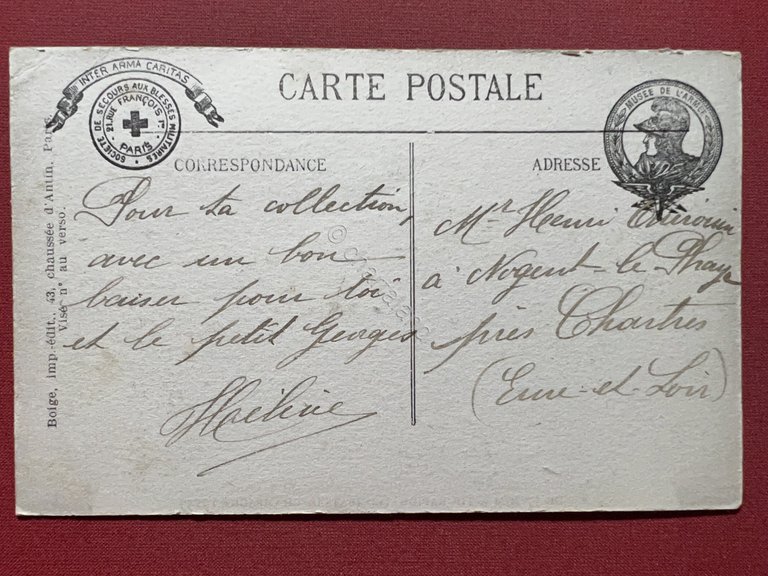 INTER ARMA CARITAS
SOCIÉTÉ DE SECOURS AUX BLESSÉS MILITAIRES
21, RUE FRANÇOIS Ier
PARIS
CARTE POSTALE
MUSÉE DE L'ARMÉE
CORRESPONDANCE
ADRESSE
Pour ta collection,
avec un bon
baiser pour toi
et le petit Georges
Hélène
Mr Henri
à Nogent-le-Phaye
près Chartres
(Eure-et-Loir)
Boige, imp.-édit., 43, chaussée d'Antin, Paris.
Visé n° au verso.